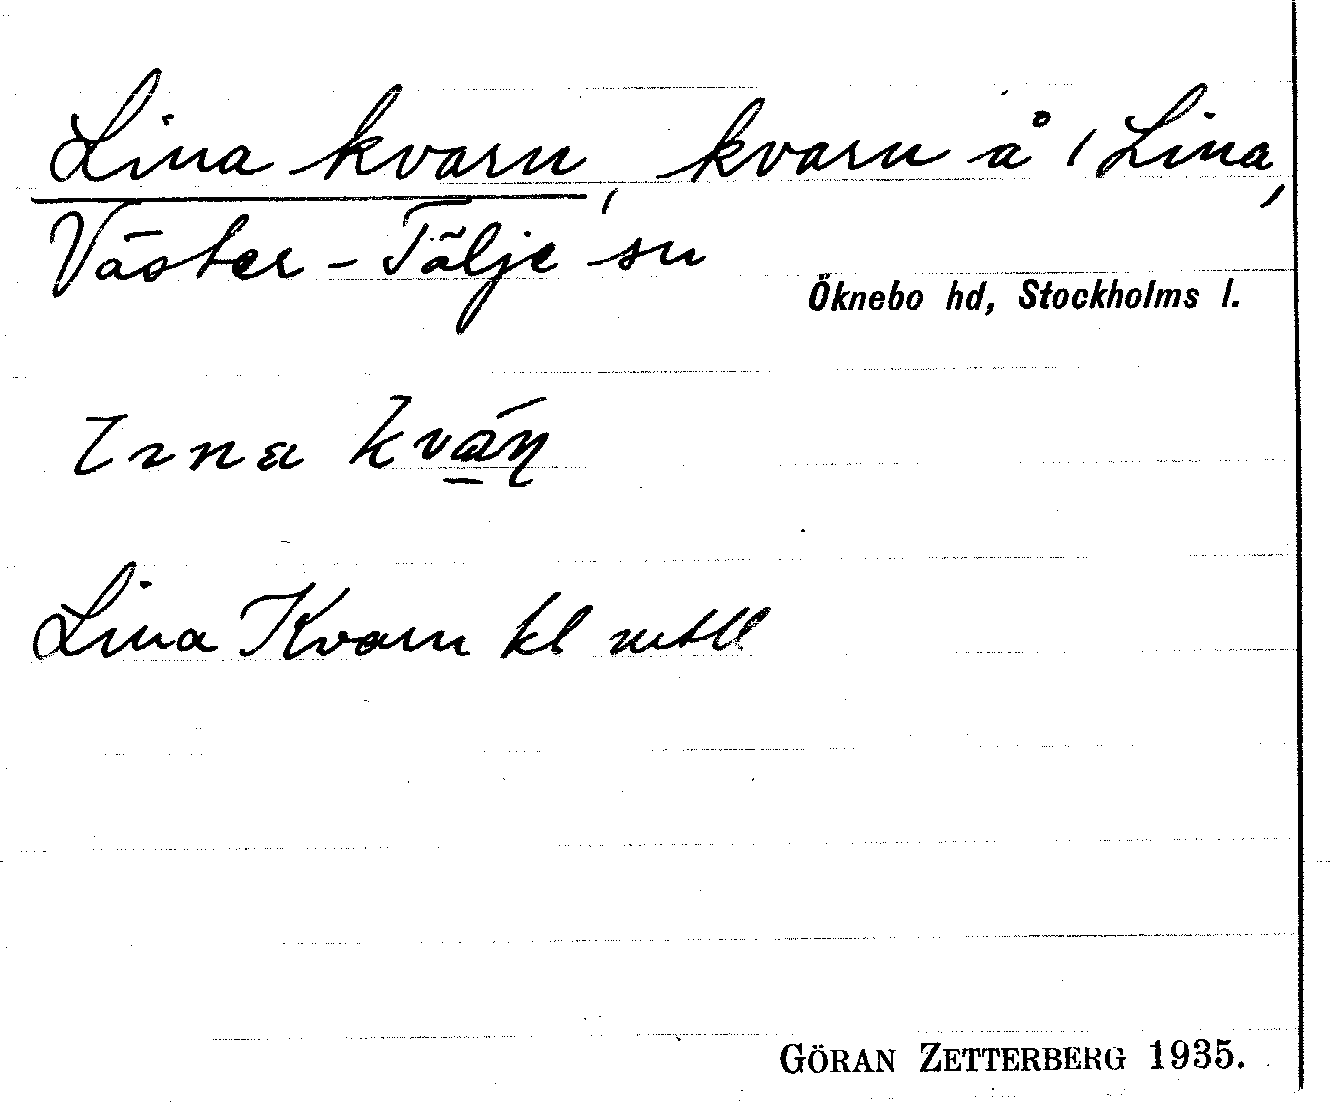 Lina kvarn, kvarn å Lina,
Väster-Tälje sn
Öknebo hd, Stockholms l.
Lina Kvarn kl mtll
GÖRAN ZETTERBERG 1935.